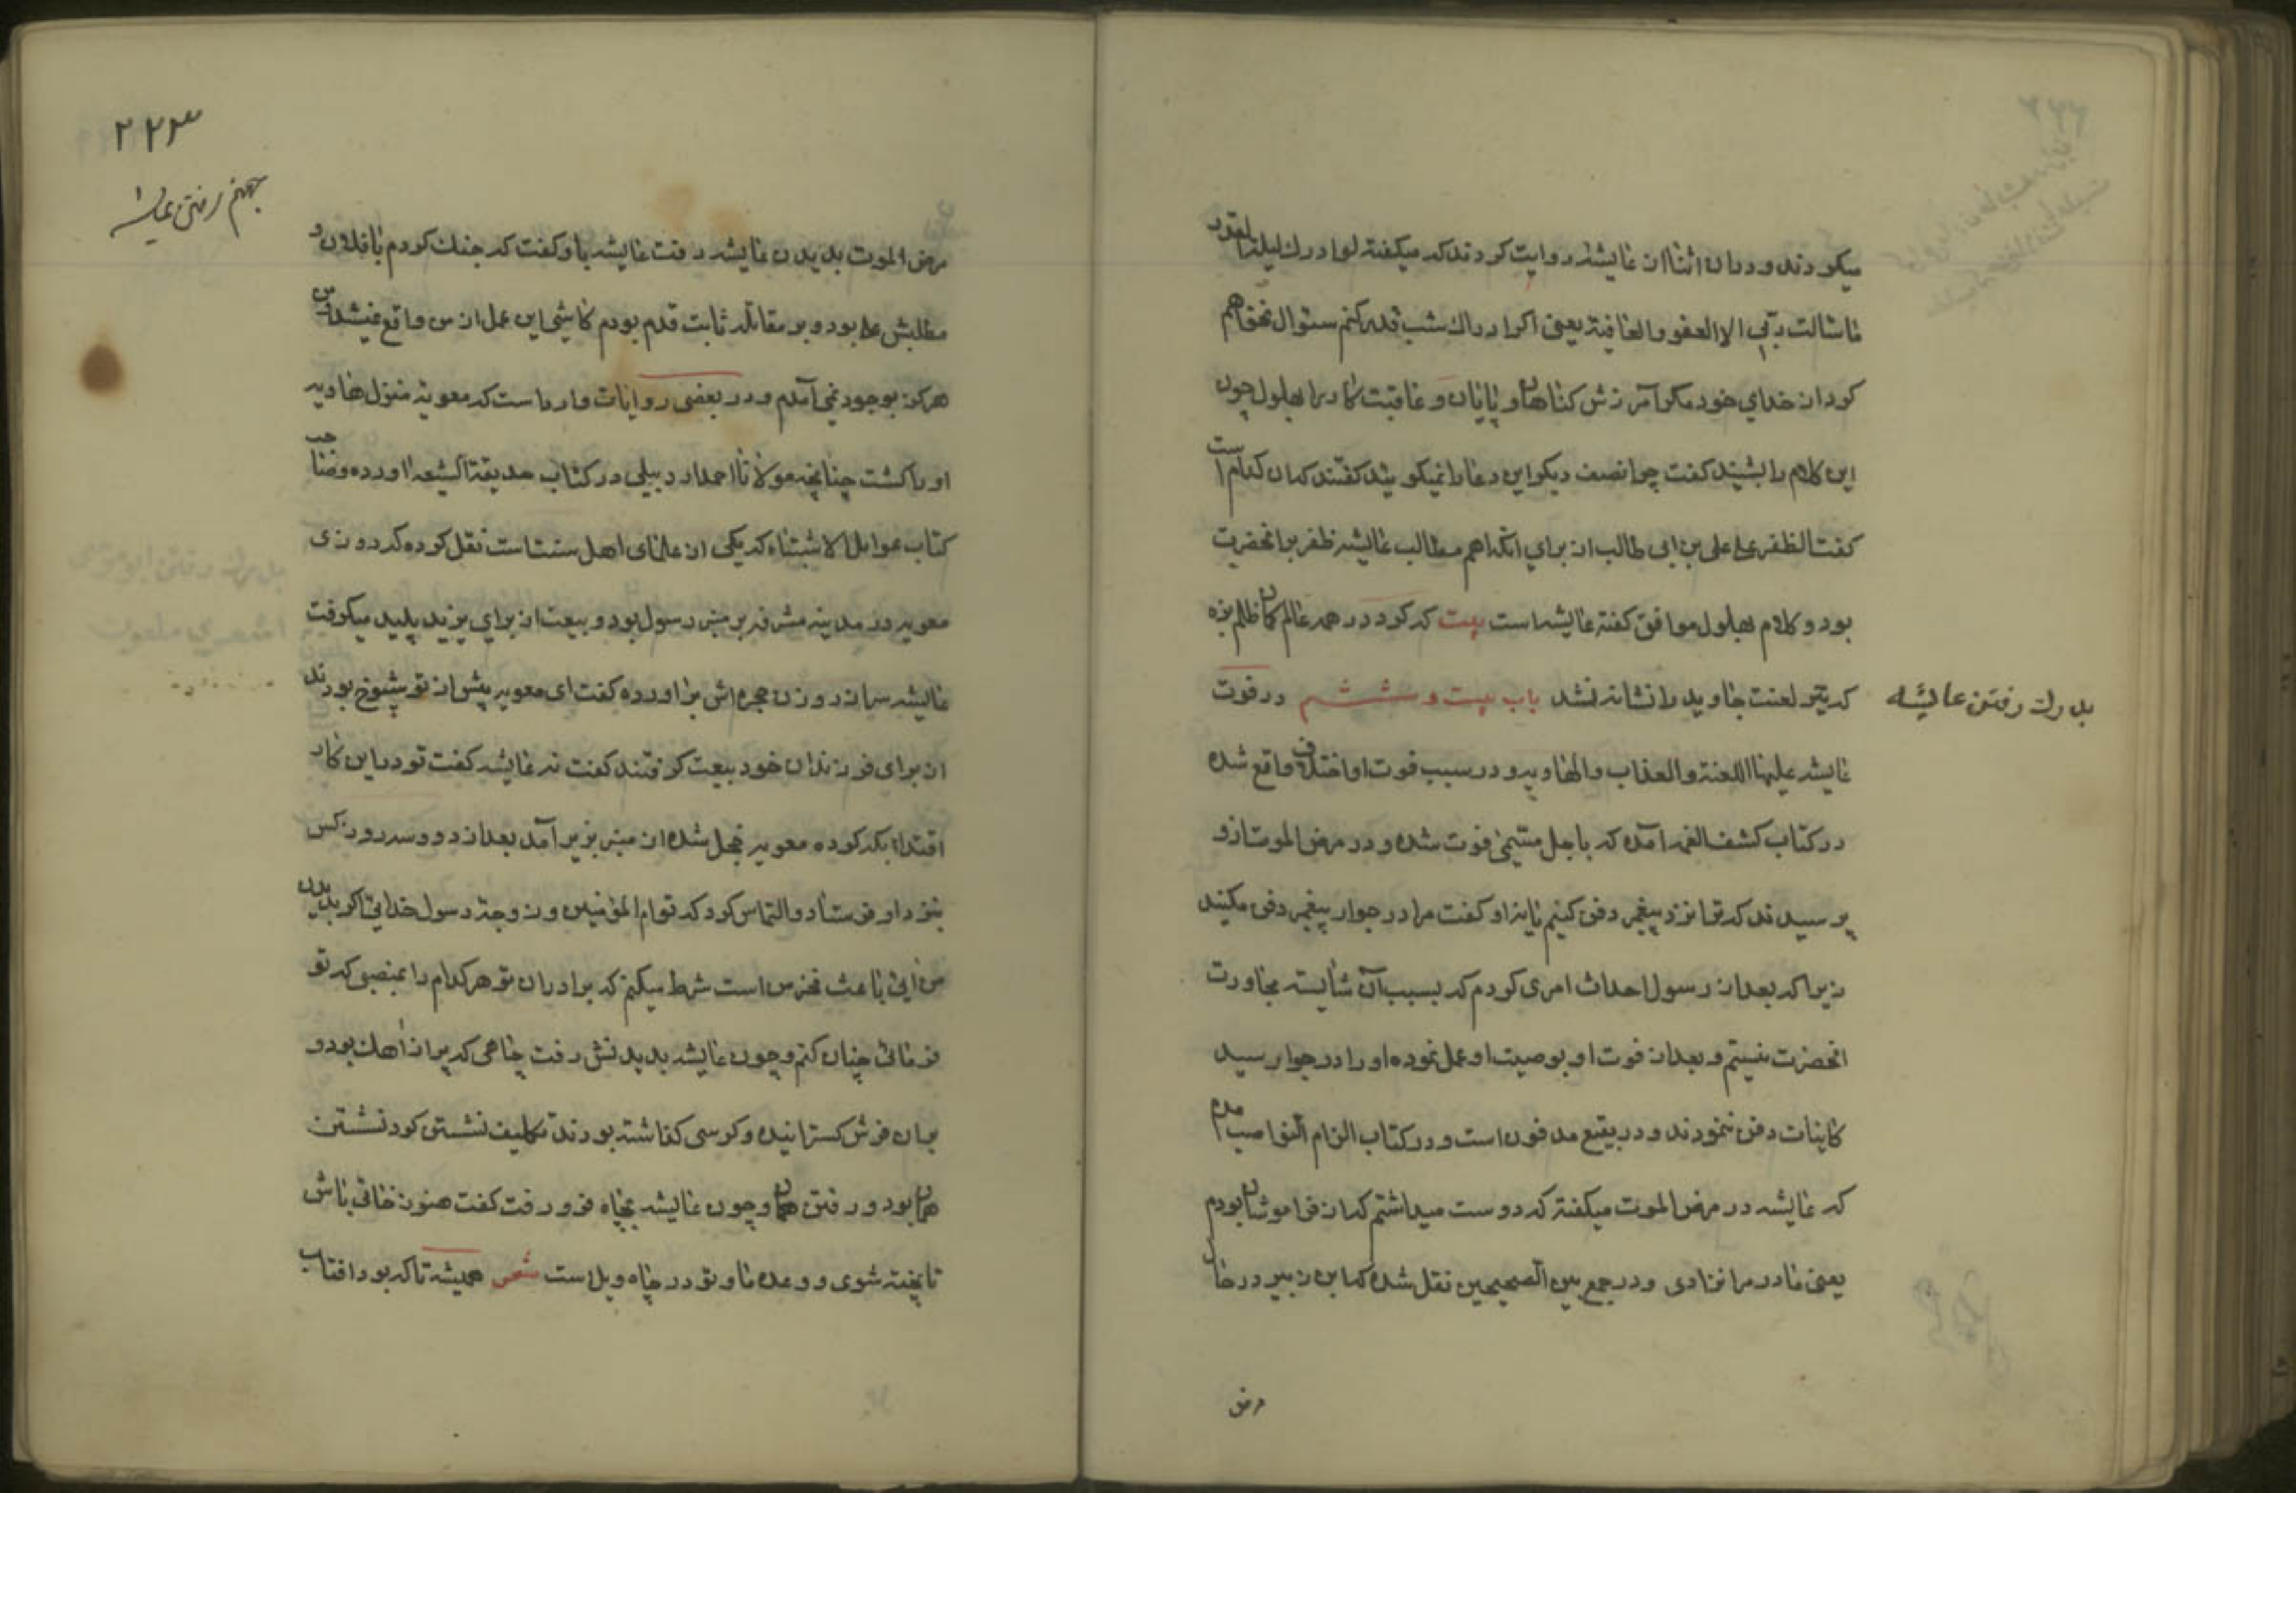 میکردند و دران اثنا از عایشه روایت کردند که میگفته لو ادرک لیلة القدر
ما سالت ربی الا العفو والعافیة یعنی اکر ادراک شب قدر کنم سئوال نخواهم
کرد از خدای خود مکر آمرزش کناهان و پایان و عاقبت کار را بهلول چون
این کلام را بشنید کفت چرا نصف دیکر این دعا را نمیکویید کفتند که ان کدام است
کفت الظفر علی علی بن ابی طالب از برای انکه اهم مطالب عایشه ظفر بر انحضرت
بود و کلام بهلول موافق کفته عایشه است بیت که کرد در همه عالم کمان ظلم بزه
که تیر لعنت جاوید را نشانه نشد باب بیست و ششم در فوت
بدرک رفتن عایشه
عایشه علیها اللعنة والعذاب والهاویه و در سبب فوت او اختلاف واقع شده
در کتاب کشف الغمه آمده که باجل متیمی فوت شده و در مرض الموت ازو
پرسیدند که ترا نزد پیغمبر دفن کنیم یا نه او کفت مرا در جوار پیغمبر دفن مکنید
زیرا که بعد از رسول احداث امری کردم که بسبب آن شایسته مجاورت
انحضرت نیستم و بعد از فوت او بوصیت او عمل نموده او را در جوار سید
کاینات دفن ننمودند و در بقیع مدفون است و در کتاب الزام النواصب آمده
که عایشه در مرض الموت میکفته که دوست میداشتم که از فراموشان بودم
یعنی مادر مرا نزادی و در جمع بین الصحیحین نقل شده که ابن زبیر در حال
مرض
۲۲۳
بجهنم رفتن عایشه
مرض الموت بدیدن عایشه رفت عایشه باو کفت که جنک کردم با فلان و
مطلبش علی بود و بر مقاتله ثابت قدم بودم کاشی این عمل از من واقع نمیشد و من
هرکز بوجود نمی آمدم و در بعضی روایات وارد است که معویه منزل هاویه
او را کشت چنانچه مولانا احمد اردبیلی در کتاب حدیقة الشیعه اورده و صاحب
کتاب عوامل الاشتباه که یکی از علمای اهل سنت است نقل کرده که در روزی
معویه در مدینه مشرفه بر منبر رسول بود و بیعت از برای یزید پلید میکرفت
عایشه سر از روزن حجره اش بر اورده کفت ای معویه پیش از تو شیوخ بودند
از برای فرزندان خود بیعت کرفتند کفت نه عایشه کفت تو در این کار
اقتدا بکه کرده معویه خجل شده از منبر بزیر آمد بعد از دو و سه روز کس
بنزد او فرستاد و التماس کرد که تو ام المؤمنین و زوجه رسول خدایی اکر بدیدن
من آیی باعث فخر من است شرط میکنم که برادران تو هر کدام را بمنصبی که تو
فرمائی چنان کنم و چون عایشه بدیدنش رفت چاهی که پر از آهک بود و
بران فرش کسترانیده و کرسی کذاشته بودند تکلیف نشستن کرد نشستن
همان بود و رفتن همان و چون عایشه بچاه فرو رفت کفت هنوز خافی باش
تا پخته شوی و وعده ما و تو در چاه ویل است شعر همیشه تا که بود افتاب